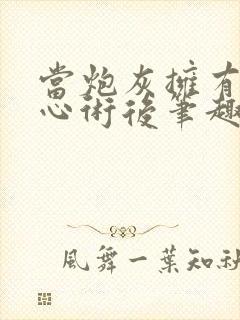 當炮灰擁有
心術後筆趣
風舞一葉知秋